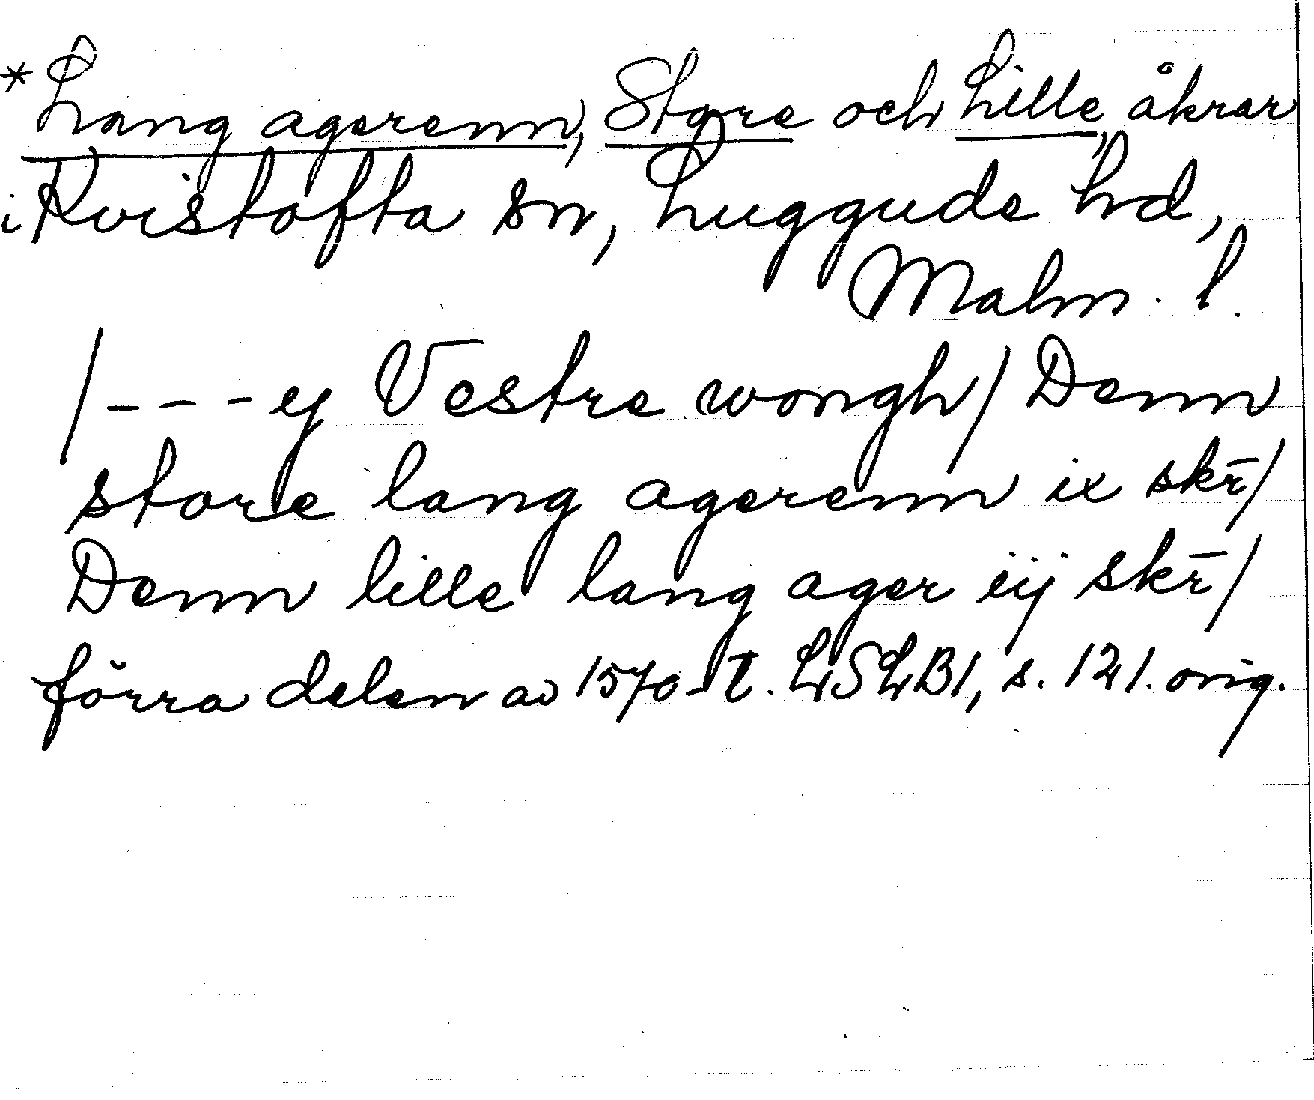 *Lang agerenn, Store och Lille, åkrar
i Kvistofta sn, Luggude hd,
Malm. l.
/ - - - ej Vestre wongh / Denn
store lang agerenn ix skr̄ /
Denn lille lang ager iij skr̄ /
förra delen av 1570-t. LSLB1, s. 121. orig.